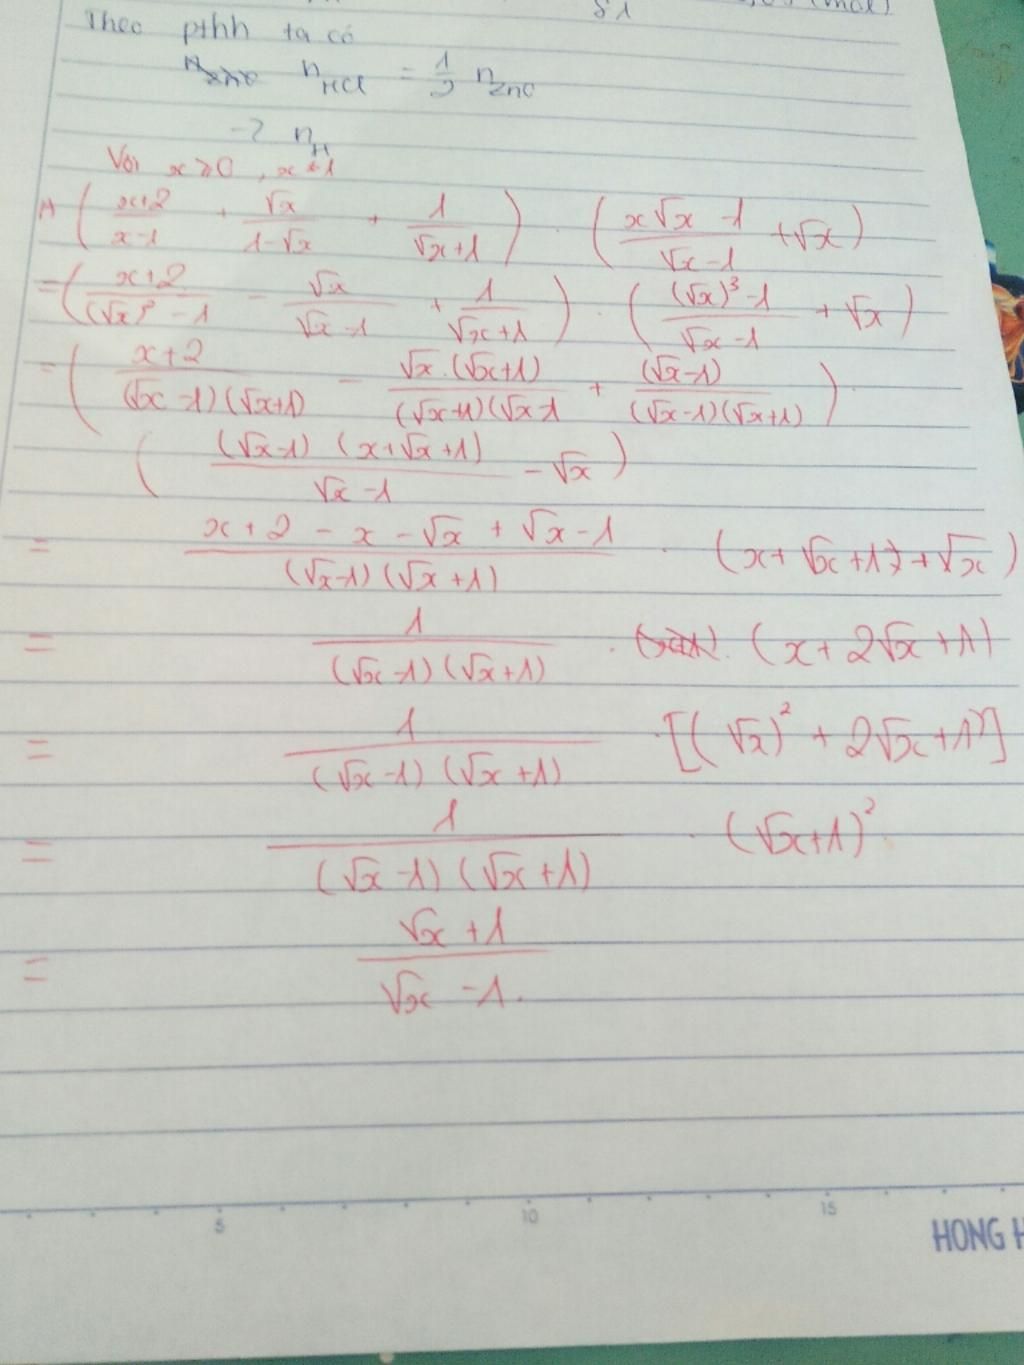 81 (mol)
Theo pthh ta có
n_HCl = 1/2 n_ZnO
-> n_H
Với x ≥ 0, x ≠ 1
A (x+2/x-1 + √x/1-√x + 1/√x+1) . (x√x -1/√x-1 + √x)
= (x+2/(√x)² -1 - √x/√x-1 + 1/√x+1) . ((√x)³-1/√x-1 + √x)
= (x+2/(√x-1)(√x+1) - √x.(√x+1)/(√x+1)(√x-1 + (√x-1)/(√x-1)(√x+1)) .
((√x-1) (x+√x+1)/√x-1 - √x)
= x+2-x-√x+√x-1/(√x-1)(√x+1) . (x+√x+1+√x)
= 1/(√x-1)(√x+1) . (x+2√x+1)
= 1/(√x-1)(√x+1) .[(√x)²+2√x+1²]
= 1/(√x-1)(√x+1) . (√x+1)²
= √x+1/√x-1.
5 10 15
HONG H